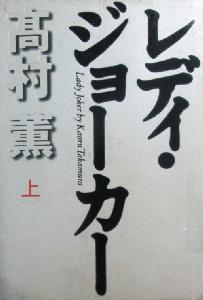 レディ・
ジョーカー
Lady Joker by Kaoru Takamura
髙村 薫
上